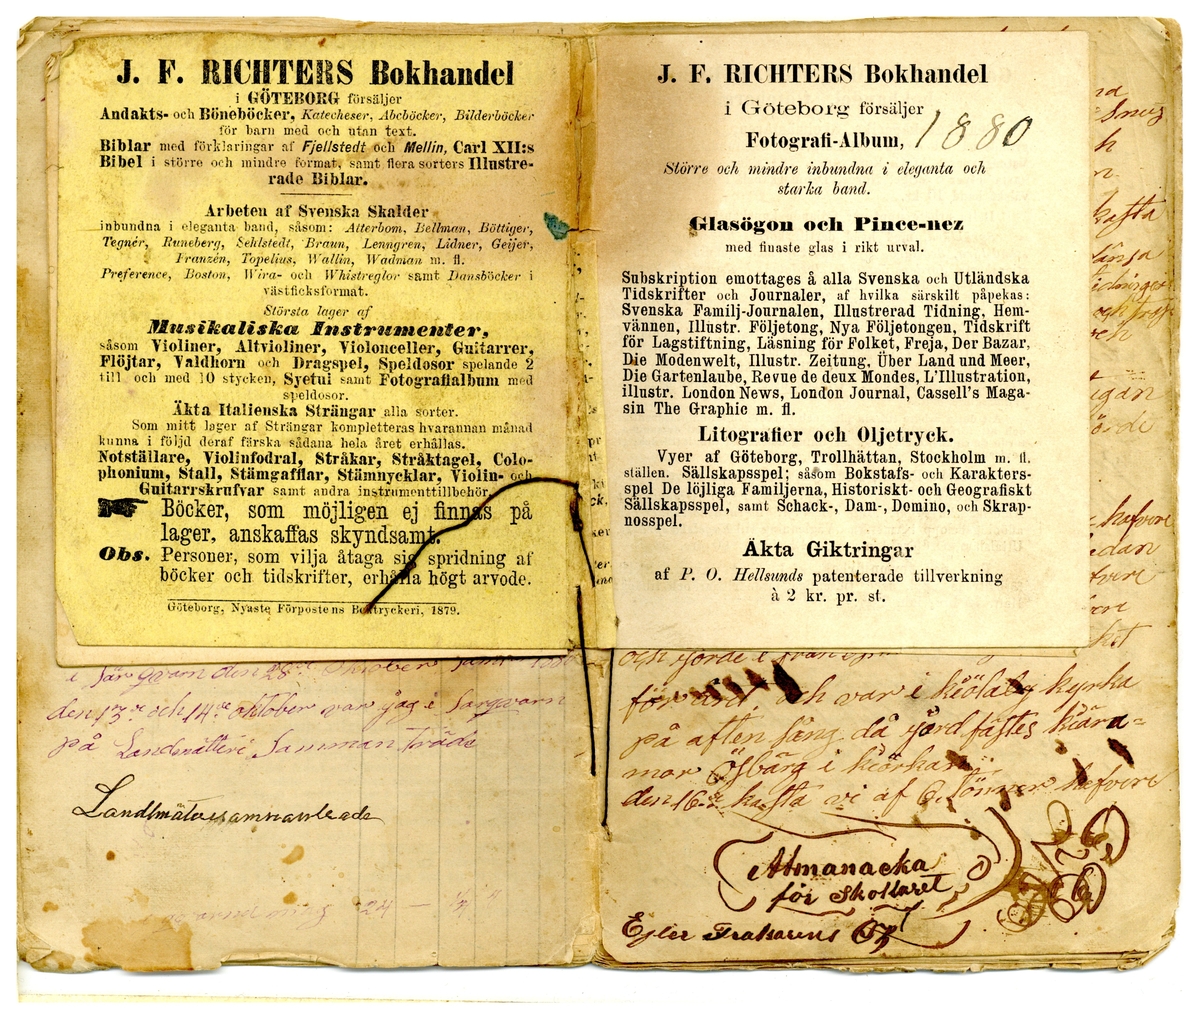 J. F. RICHTERS Bokhandel
i GÖTEBORG försäljer
Andakts- och Böneböcker, Katecheser, Abcböcker, Bilderböcker
för barn med och utan text.
Biblar med förklaringar af Fjellstedt och Mellin, Carl XII:s
Bibel i större och mindre format, samt flera sorters Illustre-
rade Biblar.
Arbeten af Svenska Skalder
inbundna i eleganta band, såsom: Atterbom, Bellman, Böttiger,
Tegnér, Runeberg, Sehlstedt, Braun, Lenngren, Lidner, Geijer,
Franzén, Topelius, Wallin, Wadman m. fl.
Preference, Boston, Wira- och Whistreglor samt Dansböcker i
västficksformat.
Största lager af
Musikaliska Instrumenter,
såsom Violiner, Altvioliner, Violonceller, Guitarrer,
Flöjtar, Valdhorn och Dragspel, Speldosor spelande 2
till och med 10 stycken, Syetui samt Fotografialbum med
speldosor.
Äkta Italienska Strängar alla sorter.
Som mitt lager af Strängar kompletteras hvarannan månad
kunna i följd deraf färska sådana hela året erhållas.
Notställare, Violinfodral, Stråkar, Stråktagel, Colo-
phonium, Stall, Stämgafflar, Stämnycklar, Violin- och
Guitarrskrufvar samt andra instrumenttillbehör.
Böcker, som möjligen ej finnas på
lager, anskaffas skyndsamt.
Obs. Personer, som vilja åtaga sig spridning af
böcker och tidskrifter, erhålla högt arvode.
Göteborg, Nyaste Förpostens Boktryckeri, 1879.
den 28de Oktober
den 13de och 14de oktober var jag i Sargvarn
på Landmätteri Samman träde
J. F. RICHTERS Bokhandel
i Göteborg försäljer
Fotografi-Album, 1880
Större och mindre inbundna i eleganta och
starka band.
Glasögon och Pince-nez
med finaste glas i rikt urval.
Subskription emottages å alla Svenska och Utländska
Tidskrifter och Journaler, af hvilka särskilt påpekas:
Svenska Familj-Journalen, Illustrerad Tidning, Hem-
vännen, Illustr. Följetong, Nya Följetongen, Tidskrift
för Lagstiftning, Läsning för Folket, Freja, Der Bazar,
Die Modenwelt, Illustr. Zeitung, Über Land und Meer,
Die Gartenlaube, Revue de deux Mondes, L'Illustration,
illustr. London News, London Journal, Cassell's Maga-
sin The Graphic m. fl.
Litografier och Oljetryck.
Vyer af Göteborg, Trollhättan, Stockholm m. fl.
ställen. Sällskapsspel; såsom Bokstafs- och Karakters-
spel De löjliga Familjerna, Historiskt- och Geografiskt
Sällskapsspel, samt Schack-, Dam-, Domino, och Skrap-
nosspel.
Äkta Giktringar
af P. O. Hellsunds patenterade tillverkning
à 2 kr. pr. st.
och giorde i
och var i kiölaby kyrka
på aften sång då jord fästes kiära=
mor i kiörkan
den 16de kasta vi af 6 tönner hafvre
Almanacka
för Skottaret
Efter